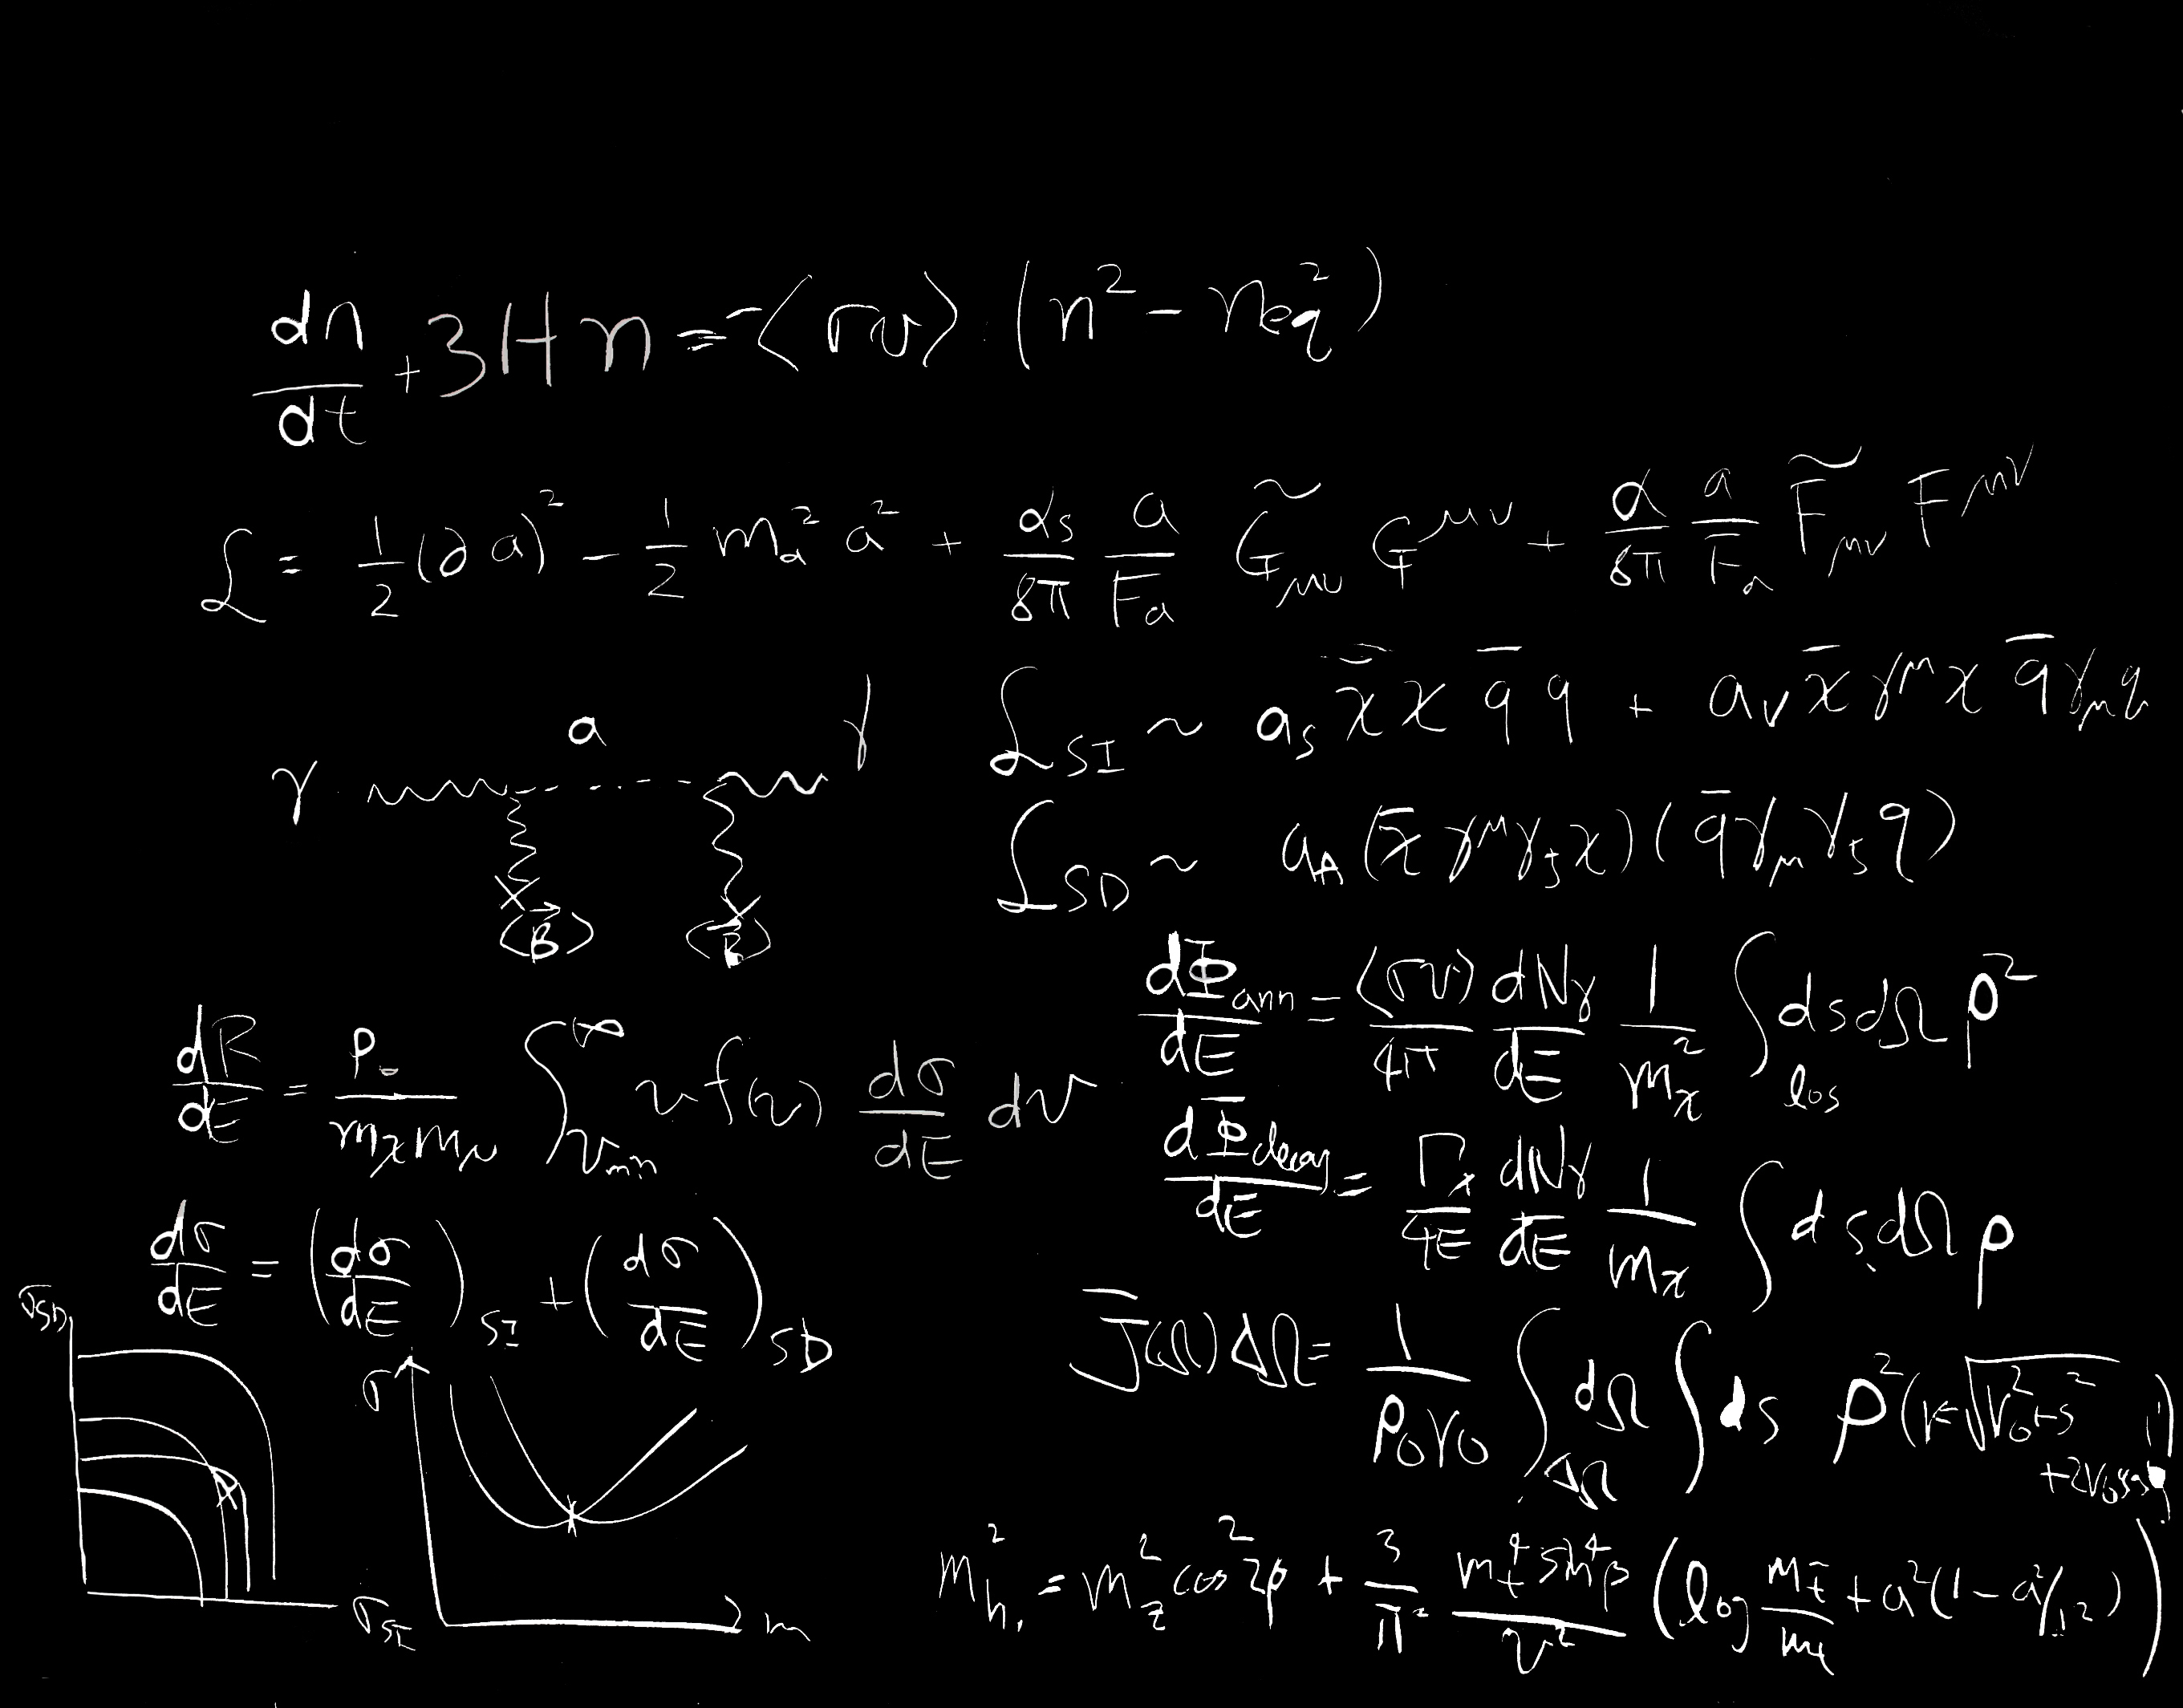 dn/dt + 3Hn = -⟨σv⟩ (n² - n_eq²)
ℒ = 1/2 (∂a)² - 1/2 m_a² a² + α_s/8π a/F_a G̃_μν G^μν + α/8π a/F_a F̃_μν F^μν
γ a γ
⟨B⃗⟩ ⟨B⃗⟩
ℒ_SI ~ a_s χ̄χ q̄q + a_V χ̄γ^μχ q̄γ_μq
ℒ_SD ~ a_A (χ̄γ^μγ_5χ)(q̄γ_μγ_5q)
dΦ_ann/dE = ⟨σv⟩/4π dN_γ/dE 1/m_χ² ∫_los dsdΩ ρ²
dR/dE = ρ_0/m_χm_N ∫_v_min^∞ v f(v) dσ/dE dv
dΦ_decay/dE = Γ_χ/4E dN_γ/dE 1/m_χ ∫ dsdΩ ρ
dσ/dE = (dσ/dE)_SI + (dσ/dE)_SD
J̄(Ω) ΔΩ = 1/ρ_0r_0 ∫_ΔΩ dΩ ∫ ds ρ²(r=√r_0²+s²
σ_SD
σ_SI
σ
m
m_h₁² = m_z² cos² 2β + 3/π² m_t⁴ sin⁴β/v² (log m_t̃/m_t + a²(1 - a²/12))